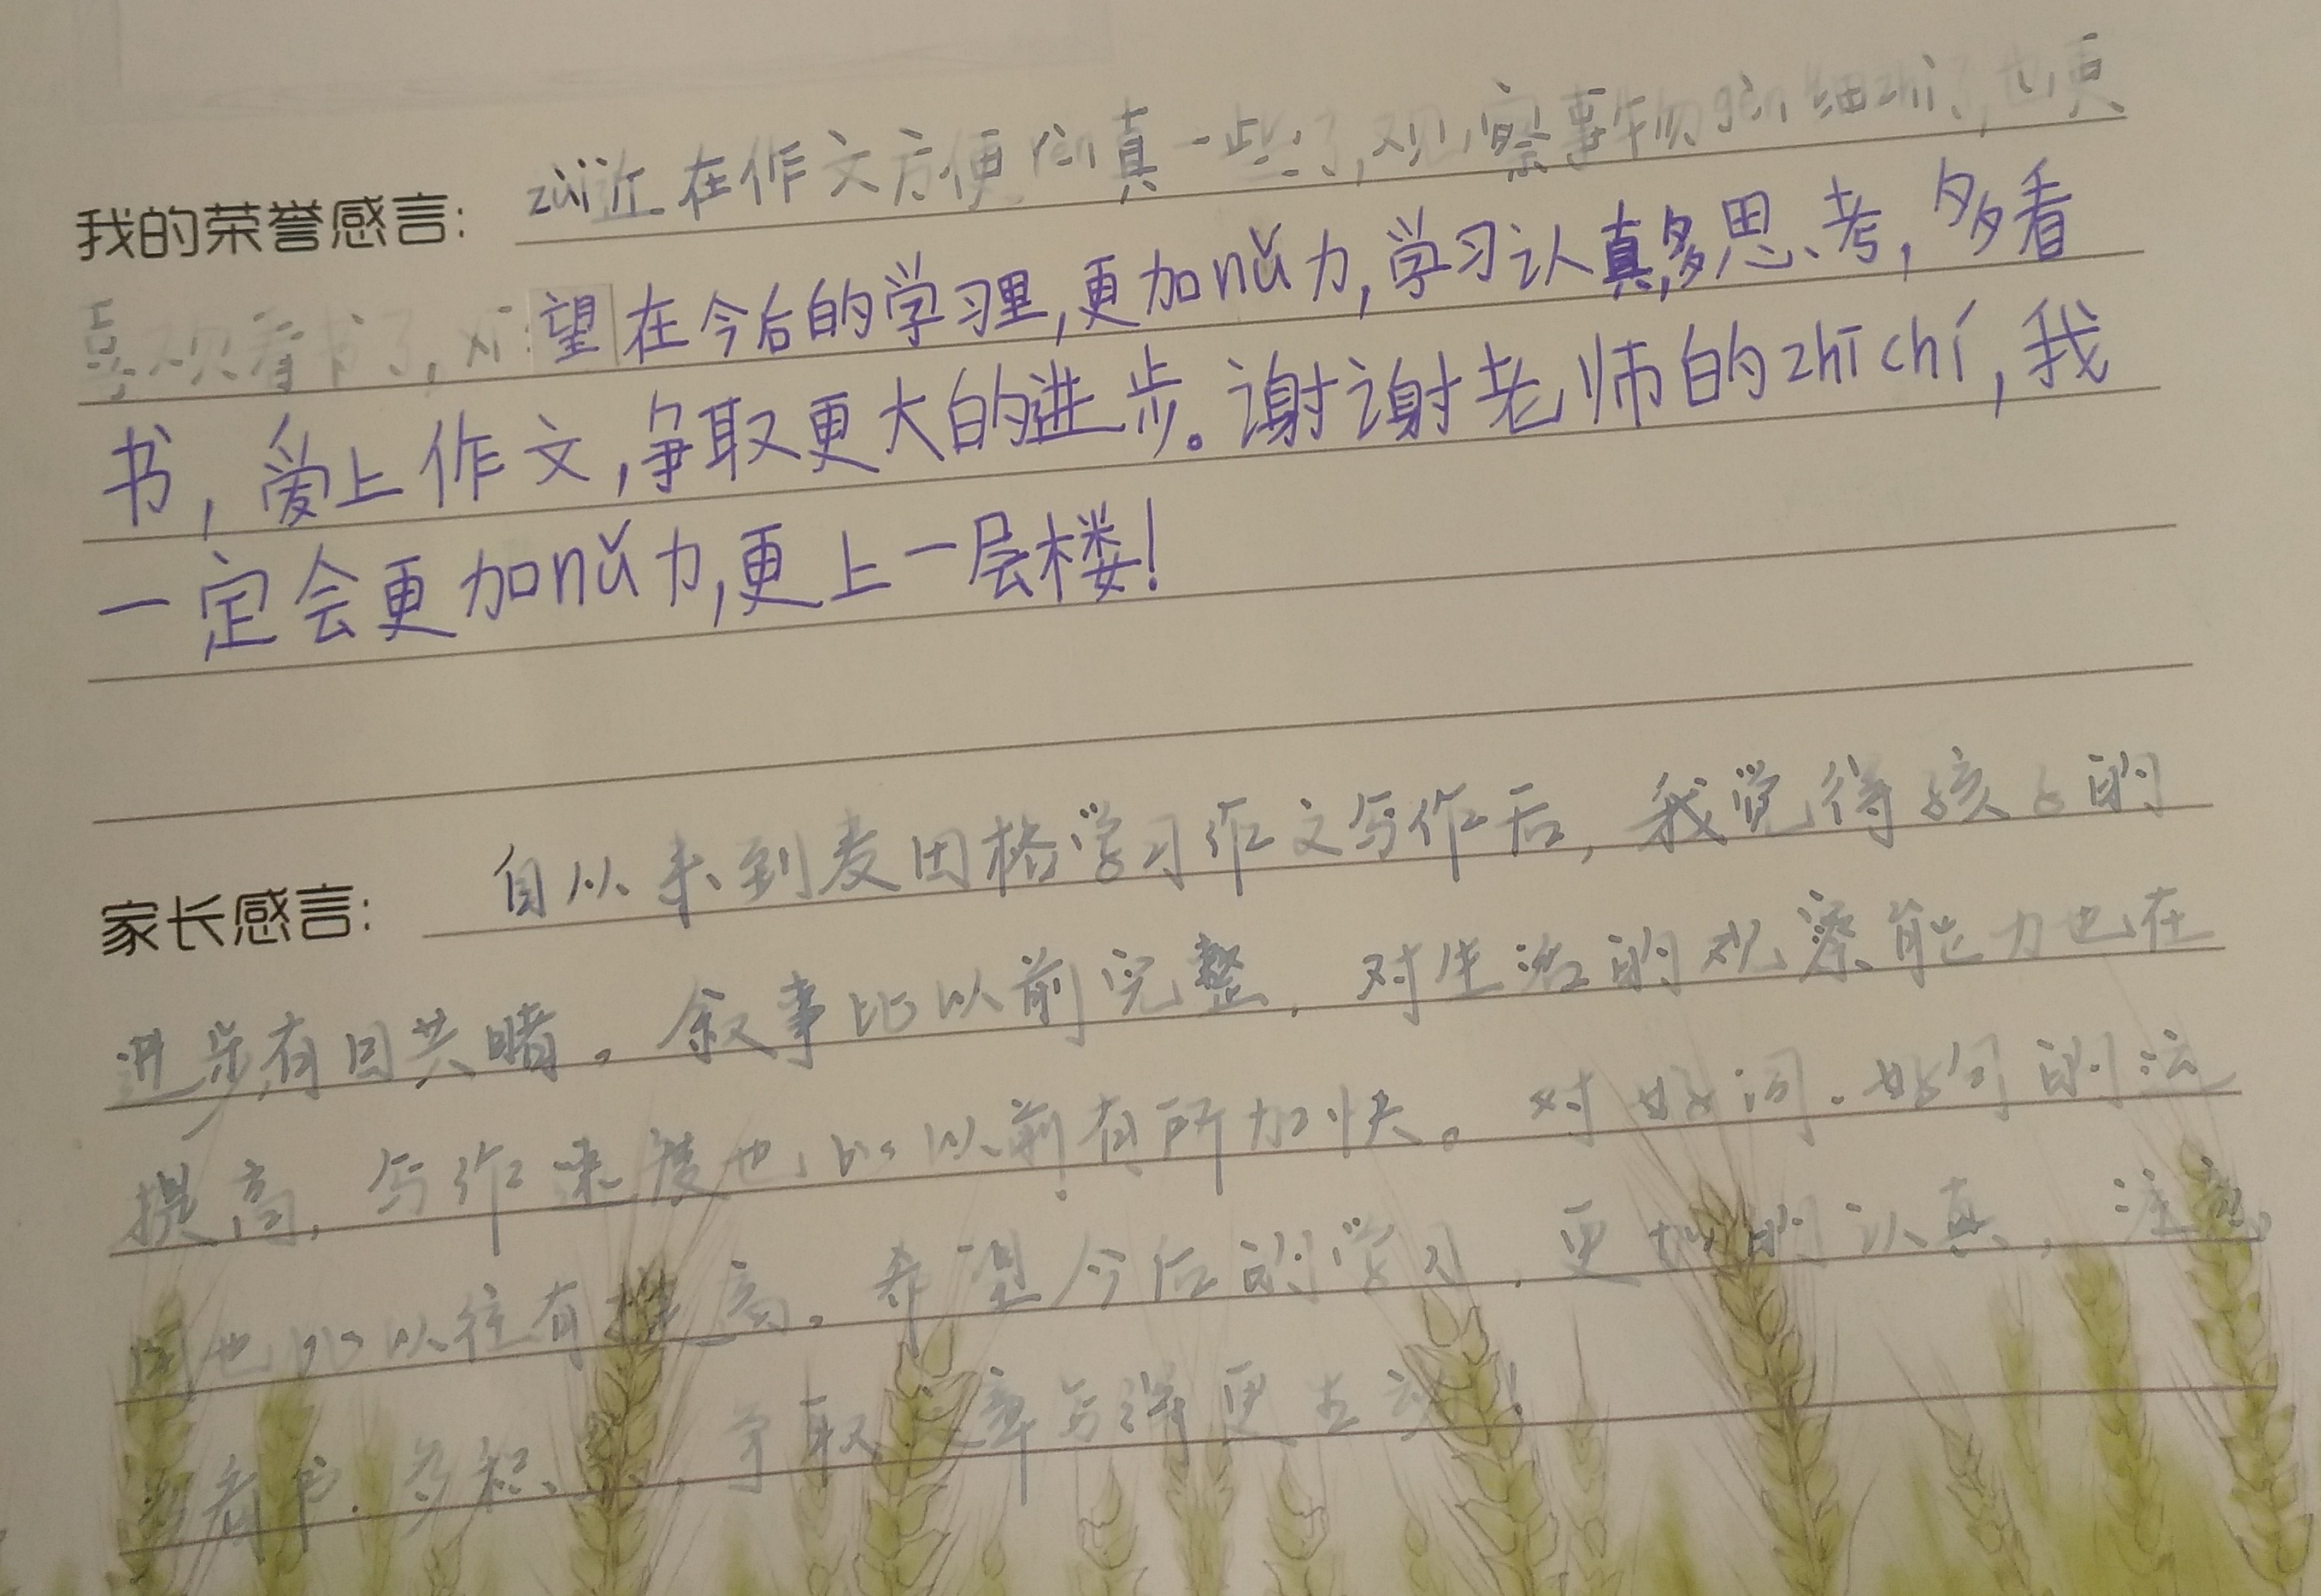 我的荣誉感言: zuì近在作文方便认真一些了,观察事物gèn细zhì了,也更
喜欢看书了,希望在今后的学习里,更加nǔ力,学习认真,多思考,多看
书,爱上作文,争取更大的进步。谢谢老师的zhīchí,我
一定会更加nǔ力,更上一层楼!
家长感言: 自从来到麦田格学习作文写作后,我觉得孩子的
进步有目共睹。叙事比以前完整,对生活的观察能力也在
提高,写作速度也比以前有所加快。对好词.好句的运
用也比以往有提高。希望今后的学习,更加的认真,注意
多看书.多积累,争取文章写得更生动!